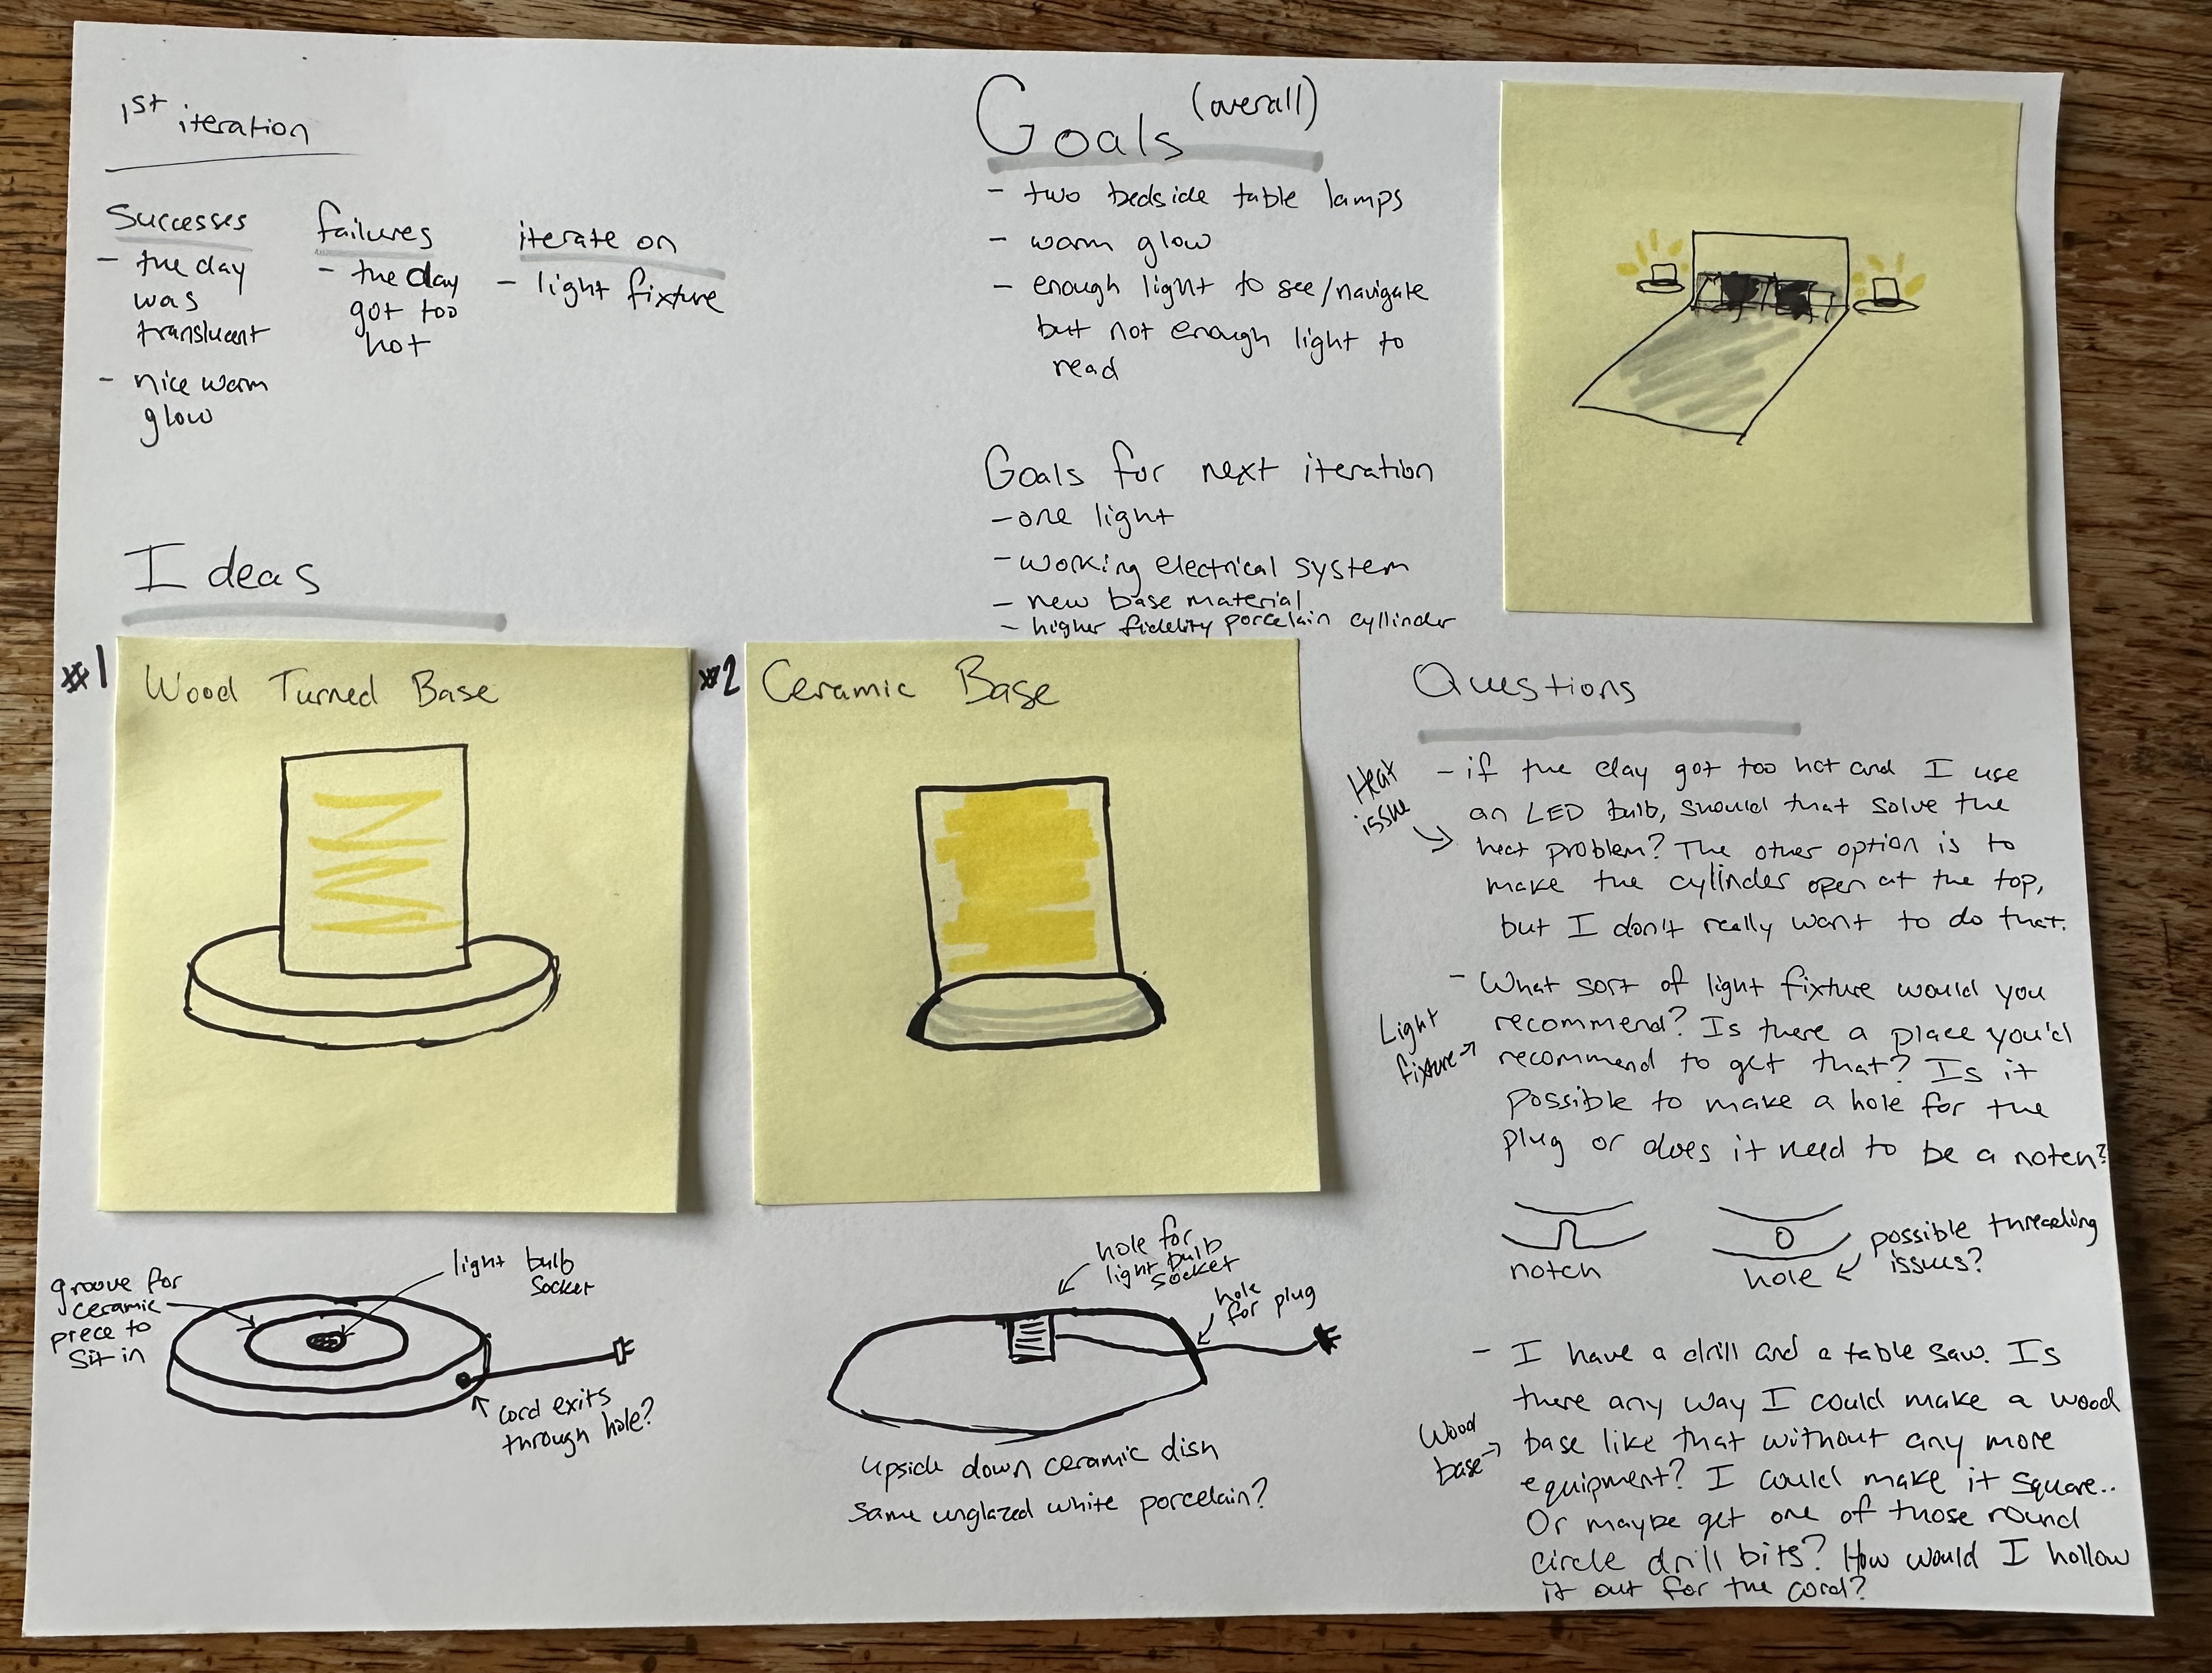 1st iteration
Successes
- the clay
was
translucent
- nice warm
glow
failures
- the clay
got too
hot
iterate on
- light fixture
Goals (overall)
- two bedside table lamps
- warm glow
- enough light to see/navigate
but not enough light to
read
Goals for next iteration
- one light
- working electrical system
- new base material
- higher fidelity porcelain cyllinder
Ideas
#1
Wood Turned Base
groove for
ceramic
piece to
sit in
light bulb
socket
cord exits
through hole?
#2
Ceramic Base
hole for
light bulb
socket
hole
for plug
upside down ceramic dish
same unglazed white porcelain?
Questions
Heat
issue
- if the clay got too hot and I use
an LED bulb, should that solve the
heat problem? The other option is to
make the cylinder open at the top,
but I don't really want to do that.
Light
fixture
- What sort of light fixture would you
recommend? Is there a place you'd
recommend to get that? Is it
possible to make a hole for the
plug or does it need to be a notch?
notch
hole
possible threading
issues?
Wood
base
- I have a drill and a table saw. Is
there any way I could make a wood
base like that without any more
equipment? I could make it square..
Or maybe get one of those round
circle drill bits? How would I hollow
it out for the cord?